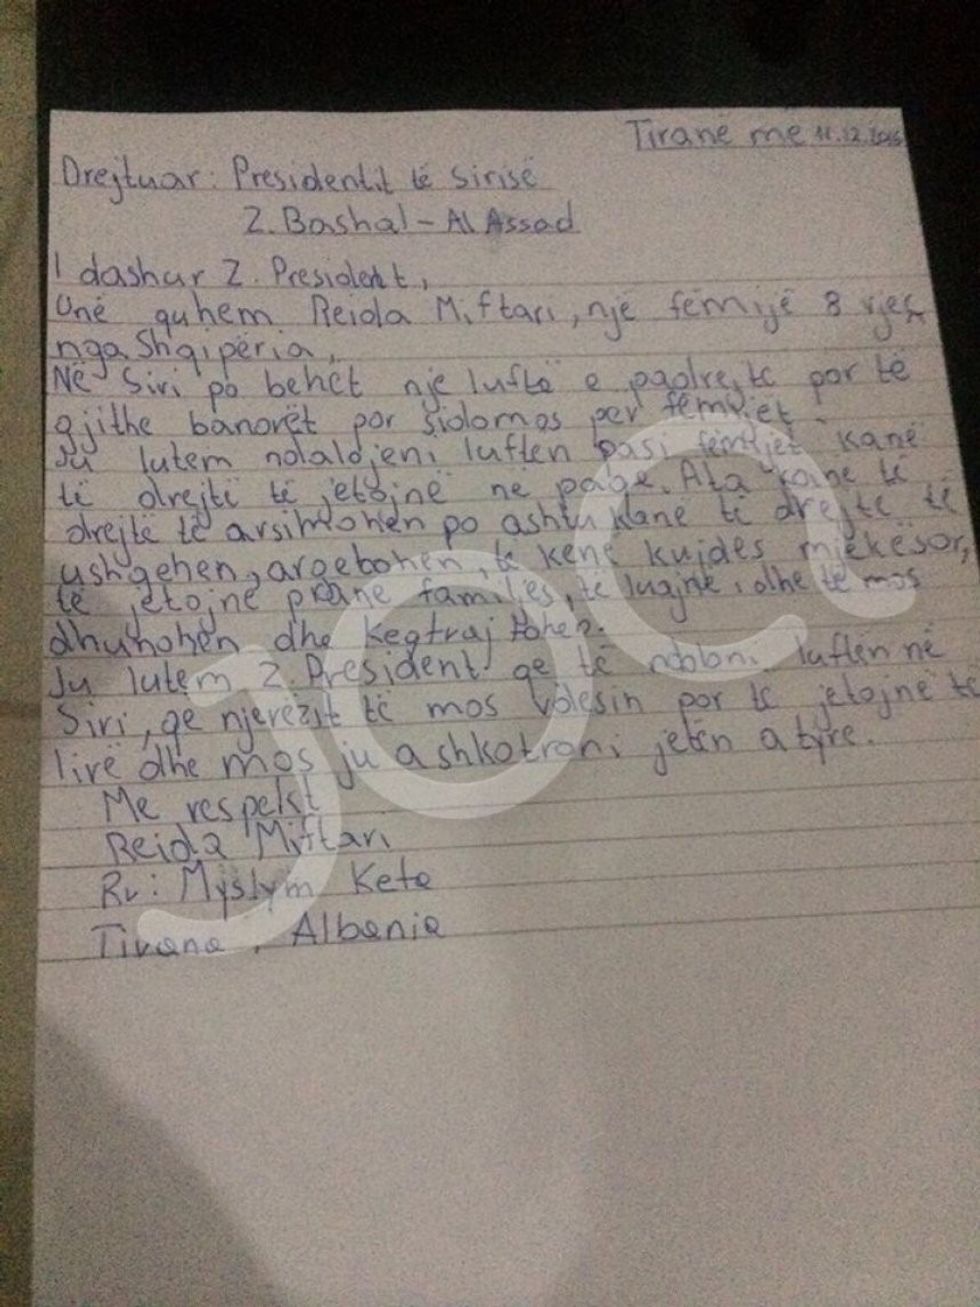 Tirane me 11.12.2016
Drejtuar: Presidentit të Sirisë
Z. Bashal - Al Assad
I dashur Z. President,
Unë quhem Reida Miftari, një femijë 8 vjeç
nga Shqipëria,
Në Siri po behet një luftë e padrejtë por të
gjithe banorët por sidomos per femijet
Ju lutem ndaldjeni luften pasi femijet kanë
të drejtë të jetojnë në paqe. Ata kane të
drejtë të arsimohen po ashtu kanë të drejtë të
ushqehen, argëtohen, të kenë kujdes mjekësor,
të jetojnë pranë familjes, të luajnë, dhe të mos
dhunohen dhe keqtrajtohen.
Ju lutem Z. President qe të ndaloni luftën në
Siri, qe njerëzit të mos vdesin por të jetojnë të
lirë dhe mos ju a shkatrroni jetën atyre.
Me respekt
Reida Miftari
Rr: Myslym Keta
Tirana, Albania
JOQ